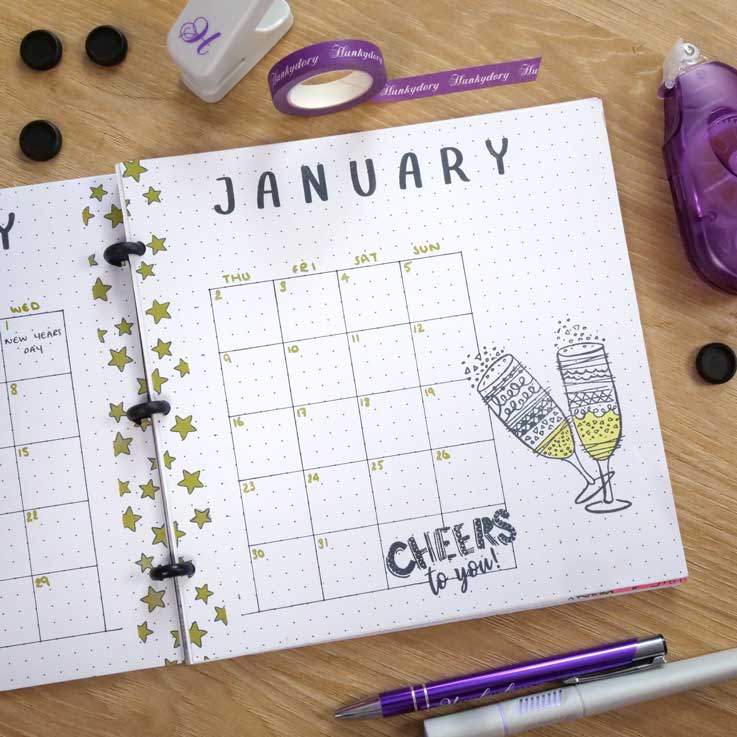 H
Hunkydory Hunkydory Hunkydory Hu
Y
JANUARY
WED
1
NEW YEARS
DAY
8
15
22
29
THU FRI SAT SUN
2 3 4 5
9 10 11 12
16 17 18 19
23 24 25 26
30 31
CHEERS
to you!
Hunkydory